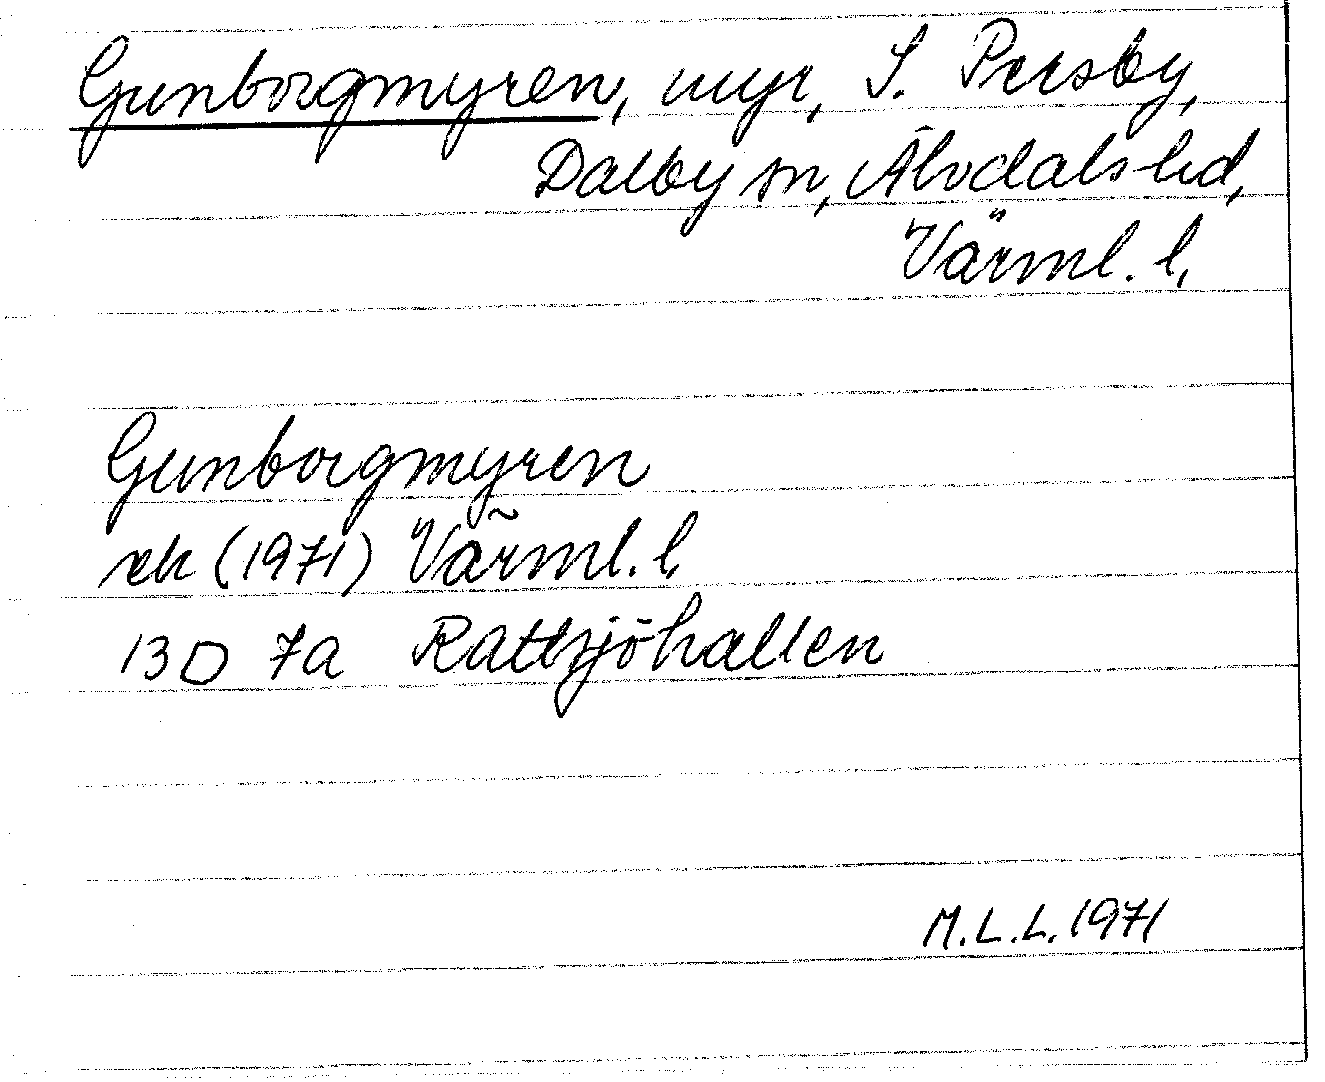 Gunborgmyren, myr, S. Persby,
Dalby sn, Älvdals hd,
Värml. l.
Gunborgmyren
rek (1971) Värml. l.
13D 7a Rattsjöhallen
M.L.L. 1971